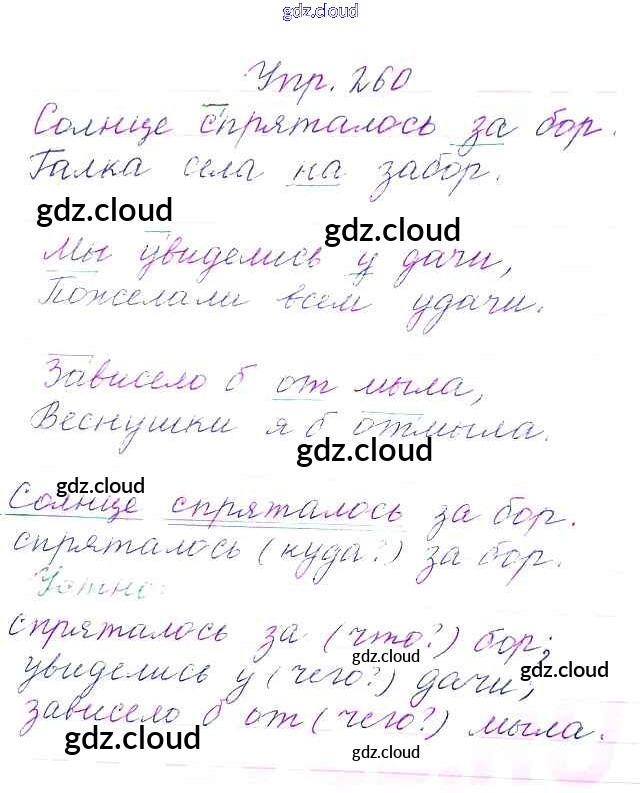 gdz.cloud
Упр. 260
Солнце спряталось за бор.
Галка села на забор.
gdz.cloud
gdz.cloud
Мы увиделись у дачи,
Пожелали всем удачи.
Зависело б от мыла,
Веснушки я б отмыла.
gdz.cloud
gdz.cloud
Солнце спряталось за бор.
спряталось (куда?) за бор.
Устно:
спряталось за (что?) бор;
gdz.cloud
увиделись у (чего?) дачи;
gdz.cloud
зависело б от (чего?) мыла.
gdz.cloud
gdz.cloud